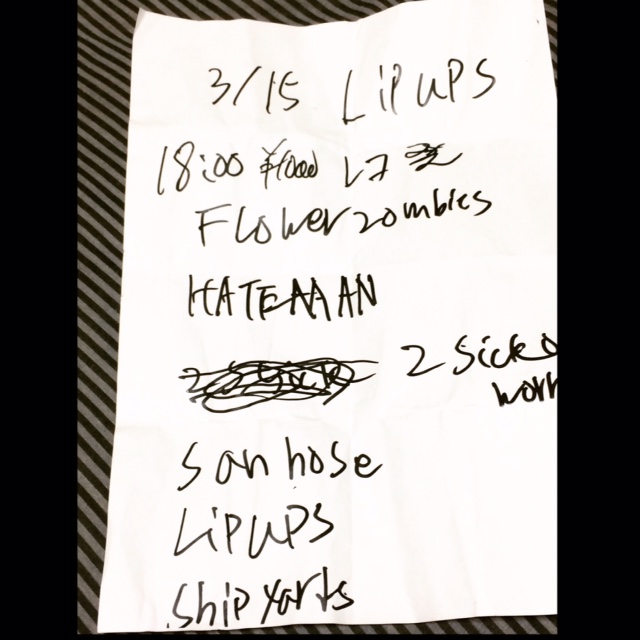 3/15 LIPUPS
18:00 ¥1000
Flower zombies
HATEMAN
2 sicks
worr
san hose
LIPUPS
ship yarts